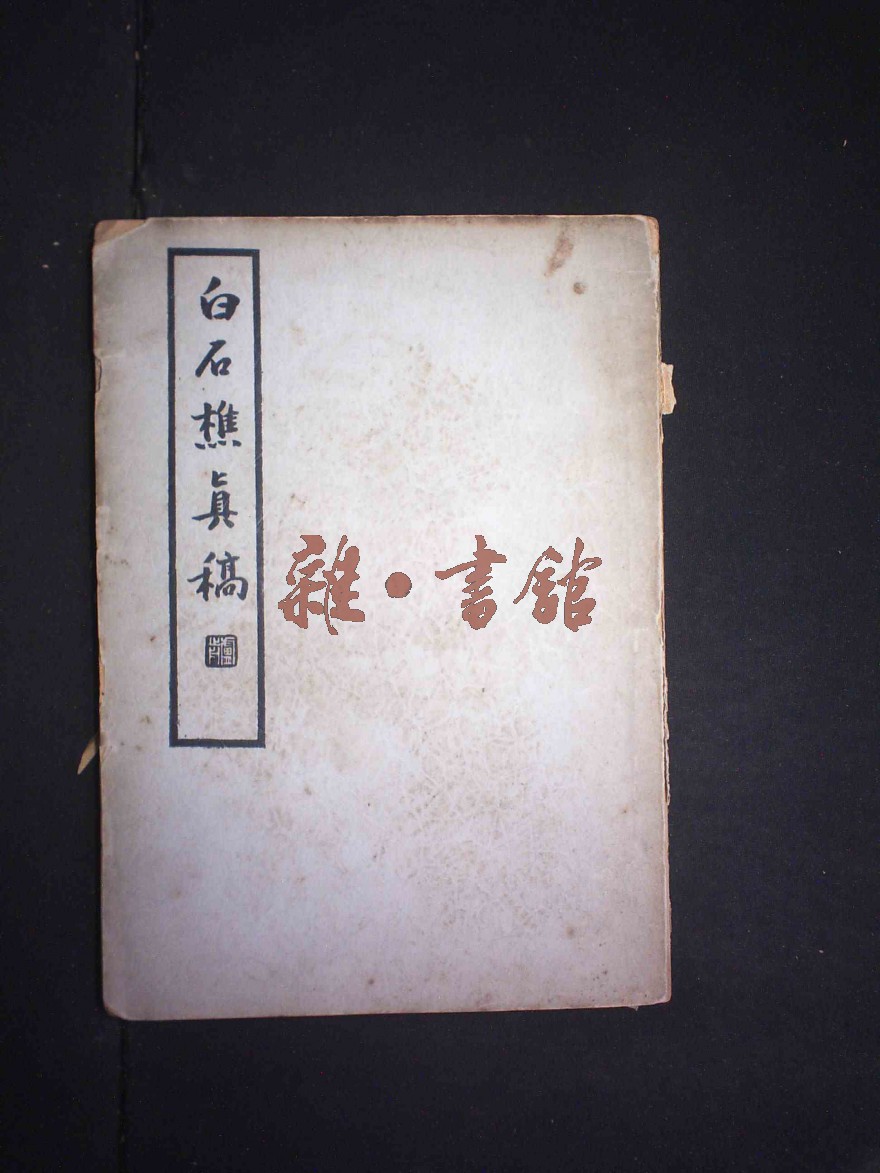 白石樵眞稿
雜·書館